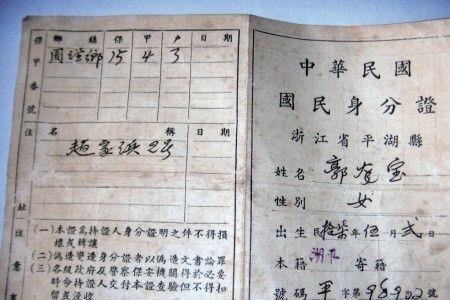 保甲番號 鄉鎮 保 甲 戶 日期
15 4 3
註
名稱 日期
趙家浜
址
註
意
(一)本證為持證人身分證明之件不得損
壞或轉讓
(二)偽造變造身分證者以偽造文書論罪
(三)各級政府及警察保安機關得於必要
時令持證人交付本證查驗但不得扣
留或沒收
中華民國
國民身分證
浙江省平湖縣
姓名 郭 宝
性別 女
出生民 柒年伍月貳日
本籍 寄籍
號碼 平字第